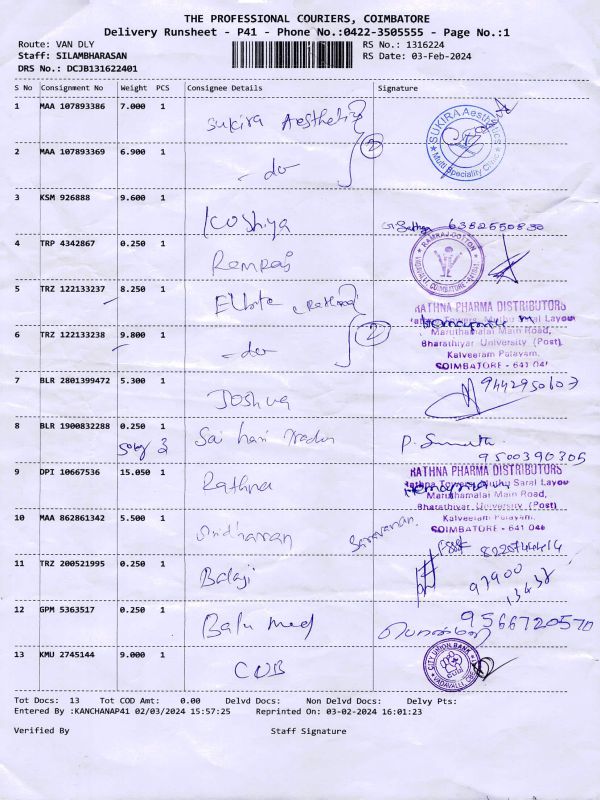 THE PROFESSIONAL COURIERS, COIMBATORE
Delivery Runsheet - P41 - Phone No.:0422-3505555 - Page No.:1
Route: VAN DLY
RS No.: 1316224
Staff: SILAMBHARASAN
RS Date: 03-Feb-2024
DRS No.: DCJB131622401
S No Consignment No Weight PCS Consignee Details Signature
1 MAA 107893386 7.000 1 Sukira Aesthetic
SUKIRA Aesthetics
Multi Speciality Clinic
2 MAA 107893369 6.900 1 - do - 2
3 KSM 926888 9.600 1 Koshiya 6382550830
4 TRP 4342867 0.250 1 Ramraj
RAMRAJ COTTON
VADAVALLI, COIMBATORE
5 TRZ 122133237 8.250 1
RATHNA PHARMA DISTRIBUTORS
6 TRZ 122133238 9.800 1 - do - 2
Maruthamalai Main Road,
Bharathiyar University (Post),
Kalveeram Palayam,
COIMBATORE - 641 046
7 BLR 2801399472 5.300 1 Joshua 9442950603
8 BLR 1900832288 0.250 1 Sai hari Trader
9500390305
9 DPI 10667536 15.050 1 Rathna
RATHNA PHARMA DISTRIBUTORS
Rathna Towers, Muthu Saral Layou
Maruthamalai Main Road,
Bharathiyar University (Post)
10 MAA 862861342 5.500 1 Sridharan Saravanan
Kalveeram Palayam,
COIMBATORE - 641 046
11 TRZ 200521995 0.250 1 Balaji 97900
13438
12 GPM 5363517 0.250 1 Balu med 9566720570
13 KMU 2745144 9.000 1 CUB
CITY UNION BANK
CUB
VADAVALLI, CBE
Tot Docs: 13 Tot COD Amt: 0.00 Delvd Docs: Non Delvd Docs: Delvy Pts:
Entered By :KANCHANAP41 02/03/2024 15:57:25 Reprinted On: 03-02-2024 16:01:23
Verified By Staff Signature